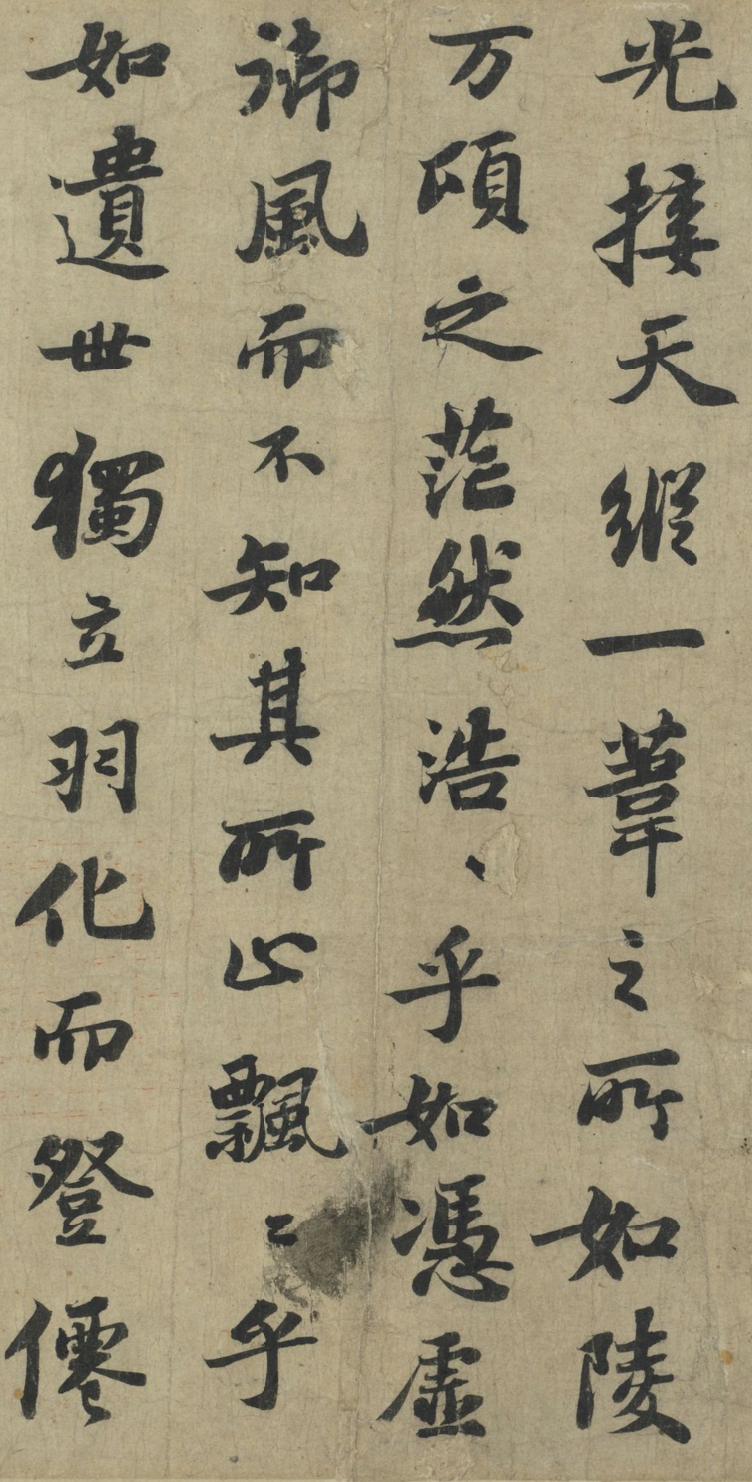 光接天縱一葦之所如陵
万頃之茫然浩、乎如憑虛
御風而不知其所止飄〻乎
如遺世獨立羽化而登僊